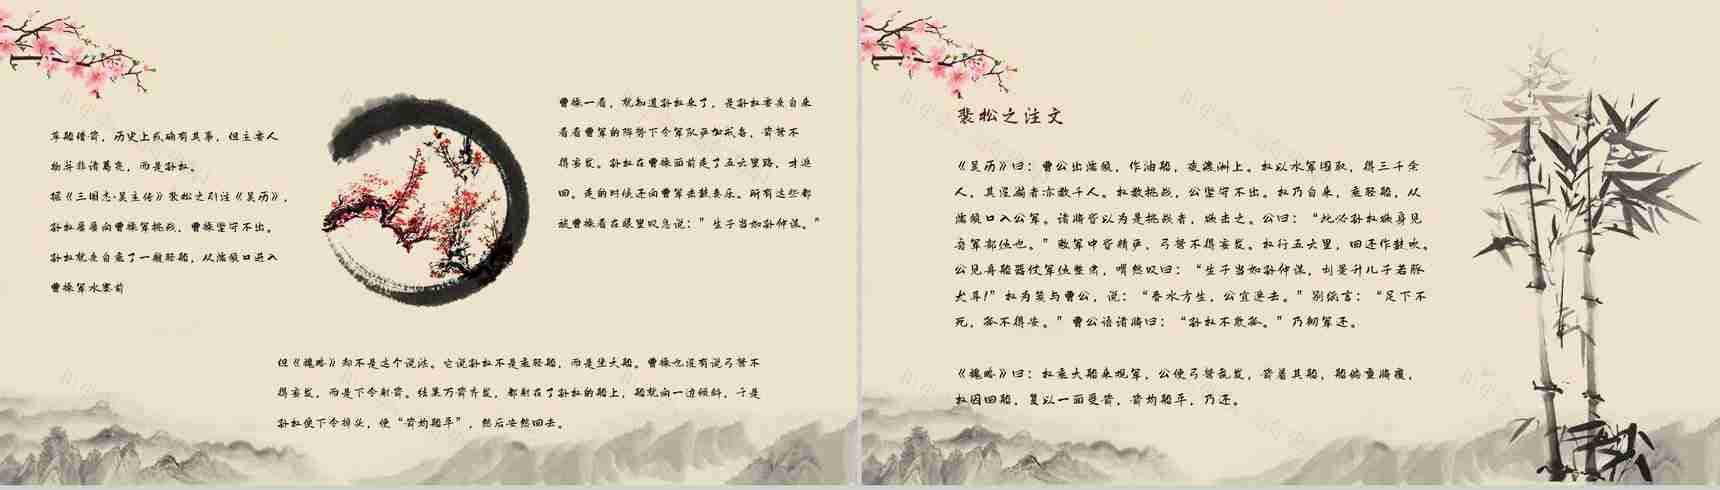 草船借箭，历史上或确有其事，但主要人
物并非诸葛亮，而是孙权。
据《三国志·吴主传》裴松之引注《吴历》，
孙权屡屡向曹操军挑战，曹操坚守不出。
孙权就亲自乘了一艘轻船，从濡须口进入
曹操军水寨前
曹操一看，就知道孙权来了，是孙权要亲自来
看看曹军的阵势下令军队严加戒备，箭弩不
得妄发。孙权在曹操面前走了五六里路，才返
回。走的时候还向曹军击鼓奏乐。所有这些都
被曹操看在眼里叹息说：”生子当如孙仲谋。”
但《魏略》却不是这个说法。它说孙权不是乘轻船，而是坐大船。曹操也没有说弓弩不
得妄发，而是下令射箭。结果万箭齐发，都射在了孙权的船上，船就向一边倾斜，于是
孙权便下令掉头，使“箭均船平”，然后安然回去。
裴松之注文
《吴历》曰：曹公出濡须，作油船，夜渡洲上。权以水军围取，得三千余
人，其没溺者亦数千人。权数挑战，公坚守不出。权乃自来，乘轻船，从
濡须口入公军。诸将皆以为是挑战者，欲击之。公曰：“此必孙权欲身见
吾军部伍也。”敕军中皆精严，弓弩不得妄发。权行五六里，回还作鼓吹。
公见舟船器仗军伍整肃，喟然叹曰：“生子当如孙仲谋，刘景升儿子若豚
犬耳！”权为笺与曹公，说：“春水方生，公宜速去。”别纸言：“足下不
死，孤不得安。”曹公语诸将曰：“孙权不欺孤。”乃彻军还。
《魏略》曰：权乘大船来观军，公使弓弩乱发，箭着其船，船偏重将覆，
权因回船，复以一面受箭，箭均船平，乃还。